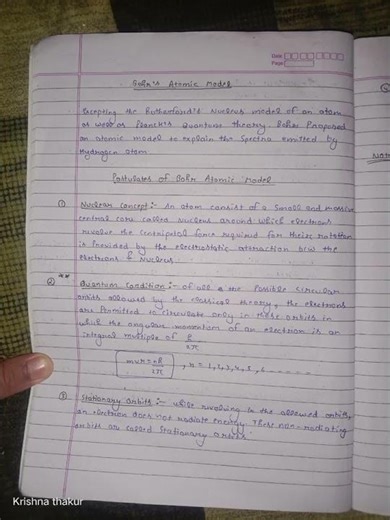 Date
Page
Bohr's Atomic Model
Excepting the Rutherford's Nucleus model of an atom
as well as Planck's Quantum theory. Bohr Proposed
an atomic model to explain the Spectra emitted by
Hydrogen atom.
Postulates of Bohr Atomic Model
① Nuclear Concept:- An atom consist of a Small and massive
central core called nucleus around which electrons
revolve the centripetal force required for their rotation
is Provided by the electrostatic attraction b/w the
electrons & Nucleus.
② Quantum Condition:- of all the Possible Circular
orbits allowed by the classical theory, the electrons
are Permitted to circulate only in those orbits in
which the angular momentum of an electron is an
integral multiple of h/2π
mvr = nh/2π , n = 1,2,3,4,5,6 .....
③ Stationary orbits:- while revolving in the allowed orbits,
an electron does not radiate energy. These non-radiating
orbits are called Stationary orbits.
Krishna thakur